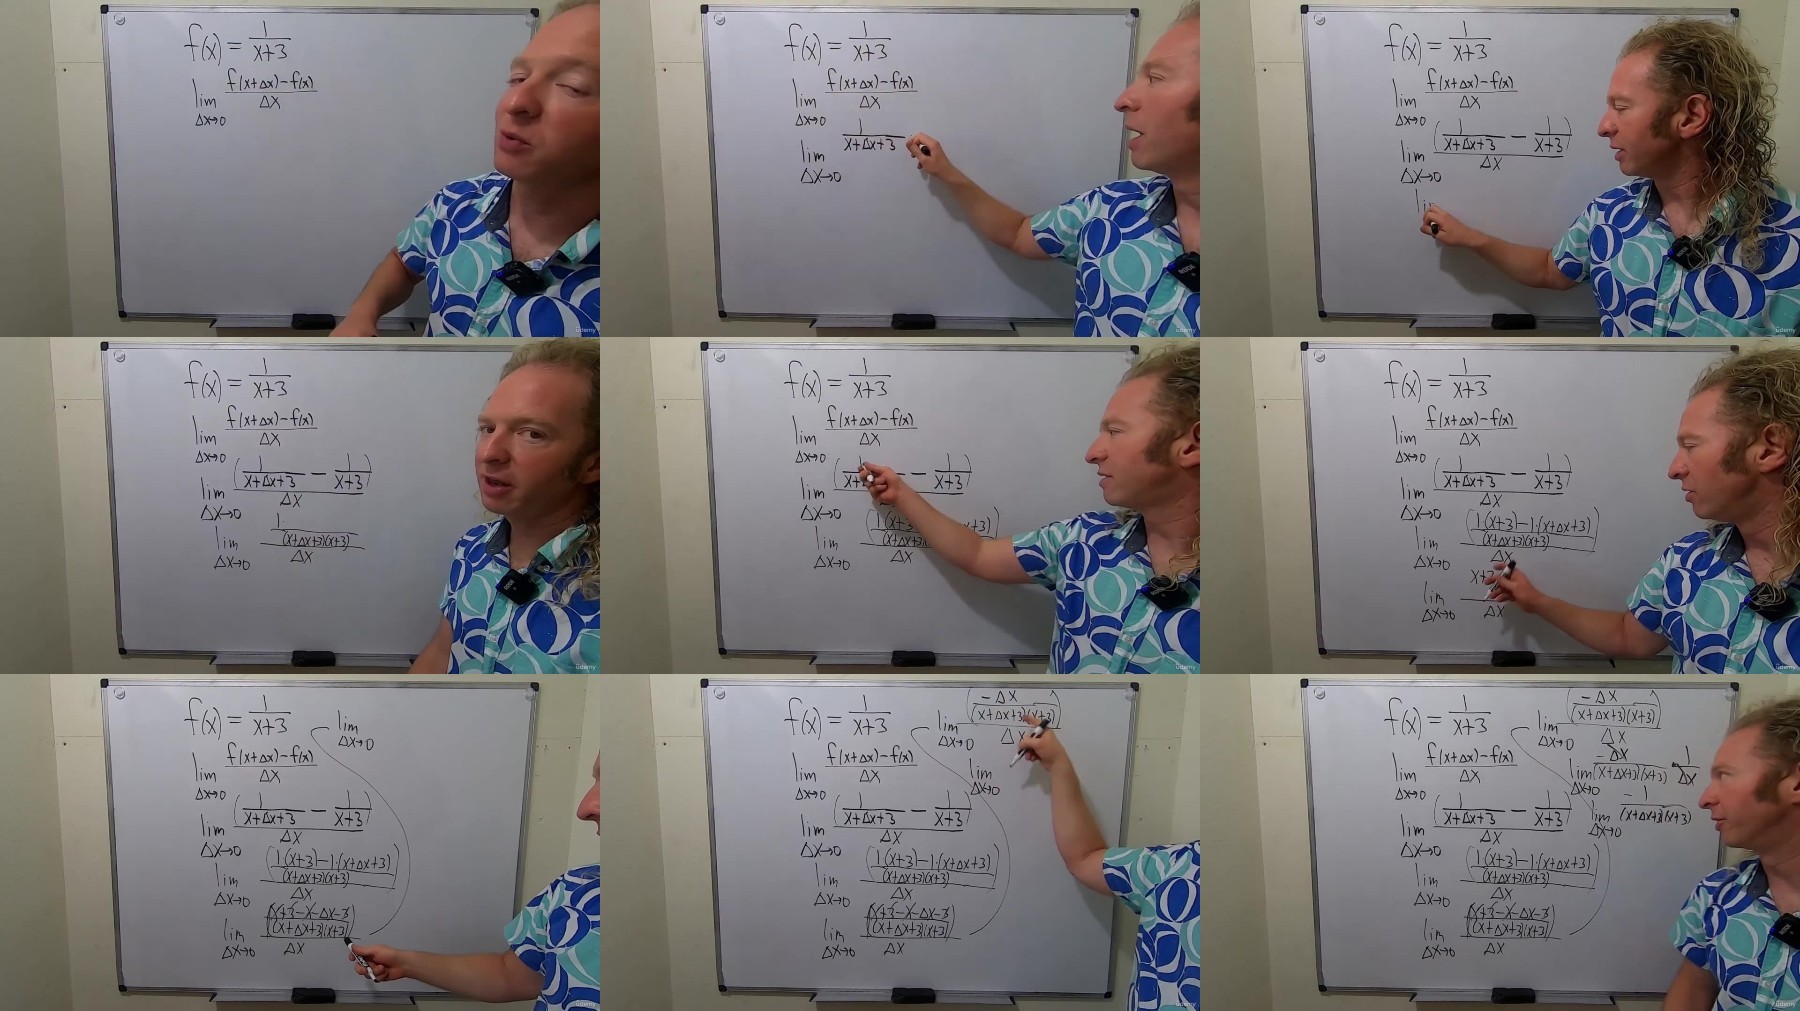 f(x) = 1/(x+3)
lim Δx→0 (f(x+Δx)-f(x))/Δx
f(x) = 1/(x+3)
lim Δx→0 (f(x+Δx)-f(x))/Δx
lim Δx→0 1/(x+Δx+3)
f(x) = 1/(x+3)
lim Δx→0 (f(x+Δx)-f(x))/Δx
lim Δx→0 (1/(x+Δx+3) - 1/(x+3))/Δx
f(x) = 1/(x+3)
lim Δx→0 (f(x+Δx)-f(x))/Δx
lim Δx→0 (1/(x+Δx+3) - 1/(x+3))/Δx
lim Δx→0 (1·/((x+Δx+3)(x+3)))/Δx
udemy
f(x) = 1/(x+3)
lim Δx→0 (f(x+Δx)-f(x))/Δx
- 1/(x+3)
lim Δx→0 (1·(x+3) x+3)/((x+Δx+3)(x+3))/Δx
udemy
f(x) = 1/(x+3)
lim Δx→0 (f(x+Δx)-f(x))/Δx
lim Δx→0 (1/(x+Δx+3) - 1/(x+3))/Δx
lim Δx→0 ((1·(x+3)-1·(x+Δx+3))/((x+Δx+3)(x+3)))/Δx
lim Δx→0 x+3 /Δx
f(x) = 1/(x+3)
lim Δx→0
lim Δx→0 (f(x+Δx)-f(x))/Δx
lim Δx→0 (1/(x+Δx+3) - 1/(x+3))/Δx
lim Δx→0 ((1·(x+3)-1·(x+Δx+3))/((x+Δx+3)(x+3)))/Δx
lim Δx→0 ((x+3-x-Δx-3)/((x+Δx+3)(x+3)))/Δx
udemy
f(x) = 1/(x+3)
lim Δx→0 (-Δx/((x+Δx+3)(x+3)))/Δx
lim Δx→0
lim Δx→0 (f(x+Δx)-f(x))/Δx
lim Δx→0 (1/(x+Δx+3) - 1/(x+3))/Δx
lim Δx→0 ((1·(x+3)-1·(x+Δx+3))/((x+Δx+3)(x+3)))/Δx
lim Δx→0 ((x+3-x-Δx-3)/((x+Δx+3)(x+3)))/Δx
udemy
f(x) = 1/(x+3)
lim Δx→0 (-Δx/((x+Δx+3)(x+3)))/Δx
lim Δx→0 -Δx/((x+Δx+3)(x+3)) · 1/Δx
lim Δx→0 -1/((x+Δx+3)(x+3))
lim Δx→0 (f(x+Δx)-f(x))/Δx
lim Δx→0 (1/(x+Δx+3) - 1/(x+3))/Δx
lim Δx→0 ((1·(x+3)-1·(x+Δx+3))/((x+Δx+3)(x+3)))/Δx
lim Δx→0 ((x+3-x-Δx-3)/((x+Δx+3)(x+3)))/Δx
udemy